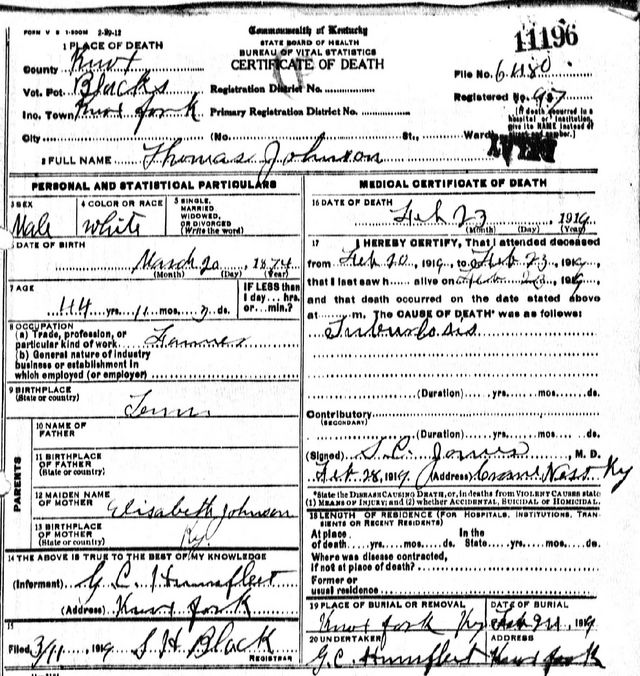 FORM V S 1-500M 2-29-12
Commonwealth of Kentucky
STATE BOARD OF HEALTH
BUREAU OF VITAL STATISTICS
CERTIFICATE OF DEATH
11196
1 PLACE OF DEATH
County Knox
File No. 61180
Vot. Pct. Blacks
Registration District No.
Registered No. 937
Inc. Town Knox fork
Primary Registration District No.
[If death occurred in a hospital or institution, give its NAME instead of street and number.]
City (No. St., Ward)
2 FULL NAME Thomas Johnson
PERSONAL AND STATISTICAL PARTICULARS
3 SEX Male
4 COLOR OR RACE White
5 SINGLE, MARRIED WIDOWED, OR DIVORCED (Write the word)
6 DATE OF BIRTH
March 20, 1874
(Month) (Day) (Year)
7 AGE
IF LESS than 1 day... hrs. or... min.?
44 yrs. 11 mos. 3 ds.
8 OCCUPATION
(a) Trade, profession, or particular kind of work Farmer
(b) General nature of industry business or establishment in which employed (or employer)
9 BIRTHPLACE
(State or country) Tenn
PARENTS
10 NAME OF FATHER
11 BIRTHPLACE OF FATHER (State or country)
12 MAIDEN NAME OF MOTHER Elisabeth Johnson
13 BIRTHPLACE OF MOTHER (State or country) Ky
14 THE ABOVE IS TRUE TO THE BEST OF MY KNOWLEDGE
(Informant) G. C. Humfleet
(Address) Knox fork
15
Filed 3/11, 1919 S H Black
REGISTRAR
MEDICAL CERTIFICATE OF DEATH
16 DATE OF DEATH
Feb 23, 1919
(Month) (Day) (Year)
17 I HEREBY CERTIFY, That I attended deceased
from Feb 20, 1919, to Feb 23, 1919,
that I last saw h alive on 1919,
and that death occurred on the date stated above
at m. The CAUSE OF DEATH* was as follows:
(Duration) yrs. mos. ds.
Contributory
(SECONDARY)
(Duration) yrs. mos. ds.
(Signed) S. C. Jones, M. D.
Feb 28, 1919 (Address) Ky
*State the DISEASE CAUSING DEATH, or, in deaths from VIOLENT CAUSES state (1) MEANS OF INJURY; and (2) whether ACCIDENTAL, SUICIDAL or HOMICIDAL.
18 LENGTH OF RESIDENCE (FOR HOSPITALS, INSTITUTIONS, TRANSIENTS OR RECENT RESIDENTS)
At place of death yrs. mos. ds. In the State yrs. mos. ds.
Where was disease contracted, if not at place of death?
Former or usual residence
19 PLACE OF BURIAL OR REMOVAL
DATE OF BURIAL
Knox fork Ky Feb 24, 1919
20 UNDERTAKER
ADDRESS
G. C. Humfleet Knox fork